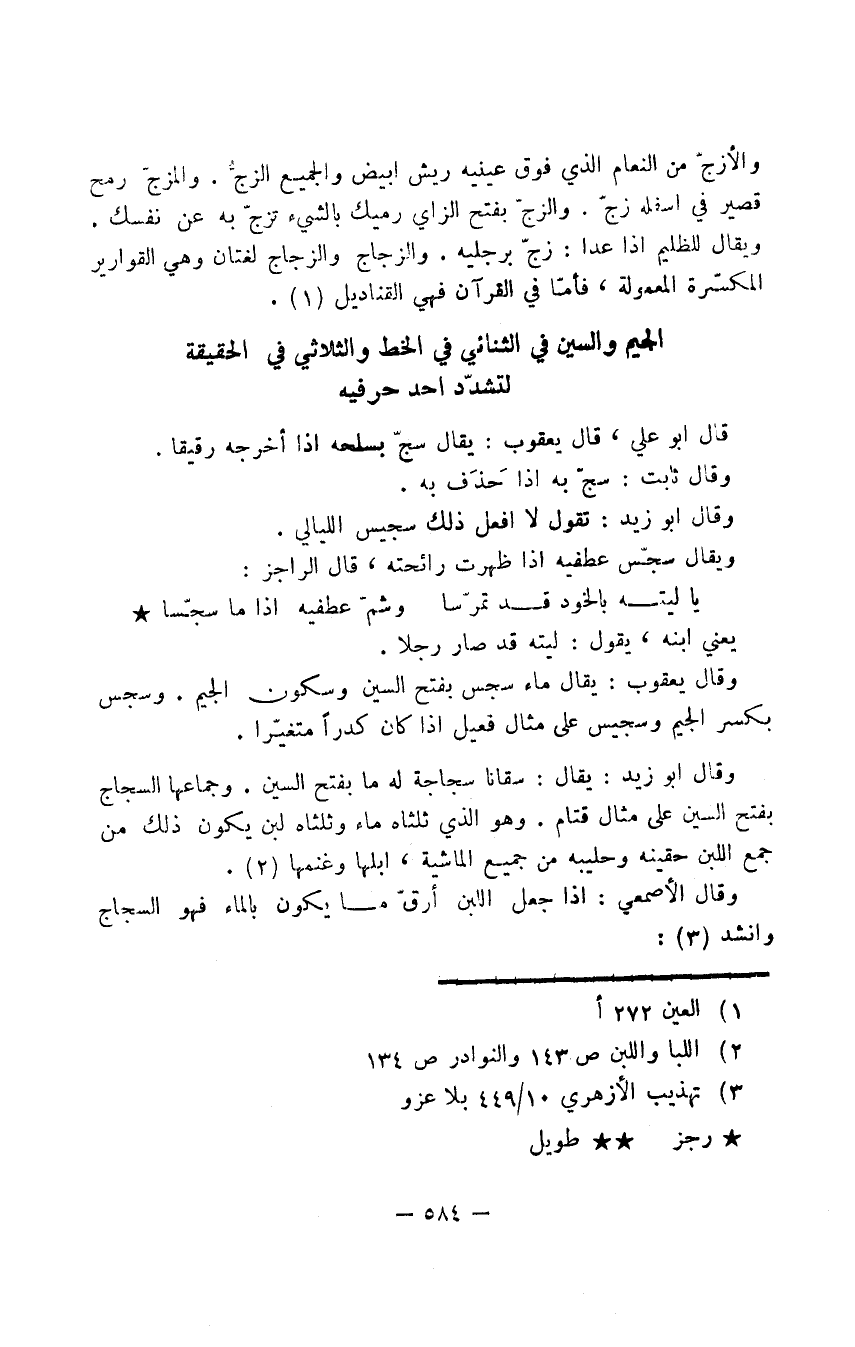 والأزجّ من النعام الذي فوق عينيه ريش ابيض والجميع الزجُّ . والمزجّ رمح
قصير في اسفله زجّ . والزجّ بفتح الزاي رميك بالشيء تزجّ به عن نفسك .
ويقال للظليم اذا عدا : زجّ برجليه . والزجاج والزجاج لغتان وهي القوارير
المكسّرة المعمولة ، فأمّا في القرآن فهي القناديل (١) .
الجيم والسين في الثنائي في الخط والثلاثي في الحقيقة
لتشدّد احد حرفيه
قال ابو علي ، قال يعقوب : يقال سجّ بسلحه اذا أخرجه رقيقا .
وقال ثابت : سجّ به اذا حَذَف به .
وقال ابو زيد : تقول لا افعل ذلك سجيس الليالي .
ويقال سجّس عطفيه اذا ظهرت رائحته ، قال الراجز :
يا ليتـــه بالخود قـــد تمرّسا وشمّ عطفيه اذا ما سجّسا ★
يعني ابنه ، يقول : ليته قد صار رجلا .
وقال يعقوب : يقال ماء سجس بفتح السين وسكون الجيم . وسجس
بكسر الجيم وسجيس على مثال فعيل اذا كان كدراً متغيّرا .
وقال ابو زيد : يقال : سقانا سجاجة له ما بفتح السين . وجماعها السجاج
بفتح السين على مثال قتام . وهو الذي ثلثاه ماء وثلثاه لبن يكون ذلك من
جمع اللبن حقينه وحليبه من جميع الماشية ، ابلها وغنمها (٢) .
وقال الأصمعي : اذا جعل اللبن أرقّ مـــا يكون بالماء فهو السجاج
وانشد (٣) :
١) العين ٢٧٢ أ
٢) اللبا واللبن ص ١٤٣ والنوادر ص ١٣٤
٣) تهذيب الأزهري ٤٤٩/١٠ بلا عزو
★ رجز ★★ طويل
— ٥٨٤ —